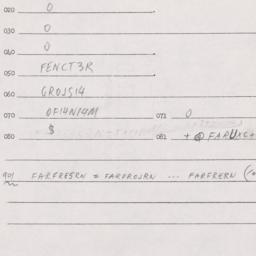 020 0
030 0
040 0
050 FENCT3R
060 GROJS14
070 OF14N14M 071 0
080 $ 081
901 FARFRESRN = FARFROJRN ... FARFRERN